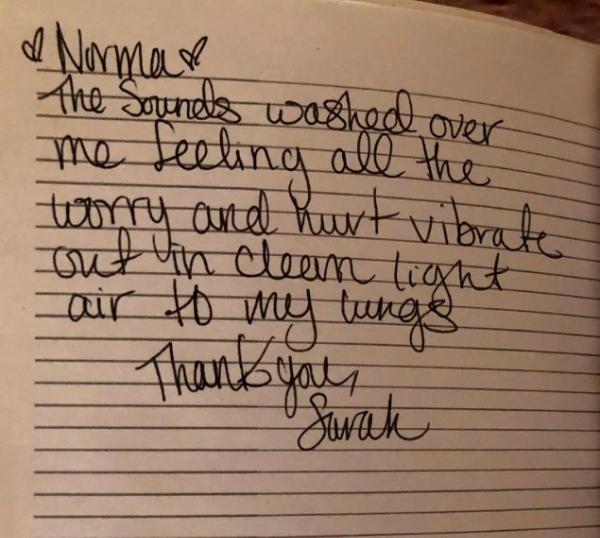 ♡ Norma ♡
The Sounds washed over
me feeling all the
worry and hurt vibrate
out in clean light
air to my lungs
Thank you,
Sarah